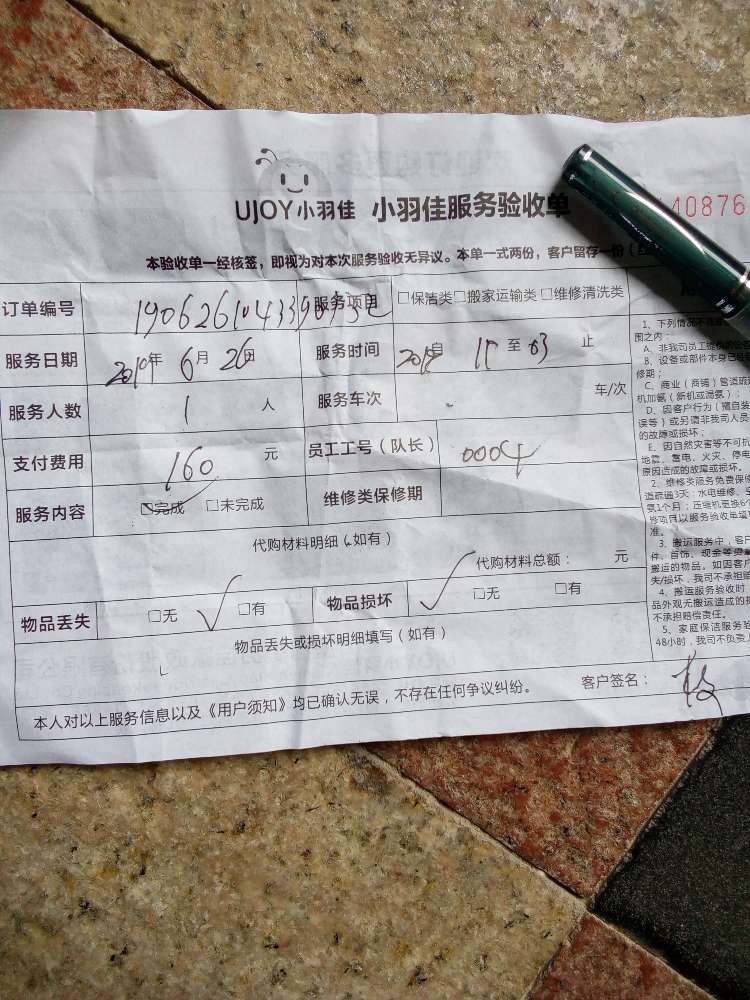 UJOY小羽佳 小羽佳服务验收单
40876
本验收单一经核签，即视为对本次服务验收无异议。本单一式两份，客户留存一份
订单编号 服务项目 □保洁类□搬家运输类□维修清洗类
服务日期 2019年 6月 26日 服务时间 自 至 止
服务人数 1 人 服务车次 车/次
支付费用 160 元 员工工号（队长） 0004
服务内容 □完成 □未完成 维修类保修期
代购材料明细（如有）
代购材料总额： 元
物品丢失 □无 □有 物品损坏 □无 □有
物品丢失或损坏明细填写（如有）
客户签名：
本人对以上服务信息以及《用户须知》均已确认无误，不存在任何争议纠纷。
1、下列情况不
围之内：
A、非我司员工
B、设备或部件本身已
修期；
C、商业（商铺）管道
机加氨（新机或滴氨）；
D、因客户行为（擅自装
误等）或另请非我司人员
的故障或损坏，
E、因自然灾害等不可抗
地震、雷电、火灾、停电
原因造成的故障或损坏。
2、维修类服务免费保修
道疏通3天；水电维修、
氨1个月；压缩机更换6个
修项目以服务验收单填
准。
3、搬运服务中，客户
件、首饰、现金等贵重
搬运的物品。如因客户
失/损坏，我司不承担赔
4、搬运服务验收时
品外观无搬运造成的损
不承担赔偿责任。
5、家庭保洁服务验
48小时，我司不负责